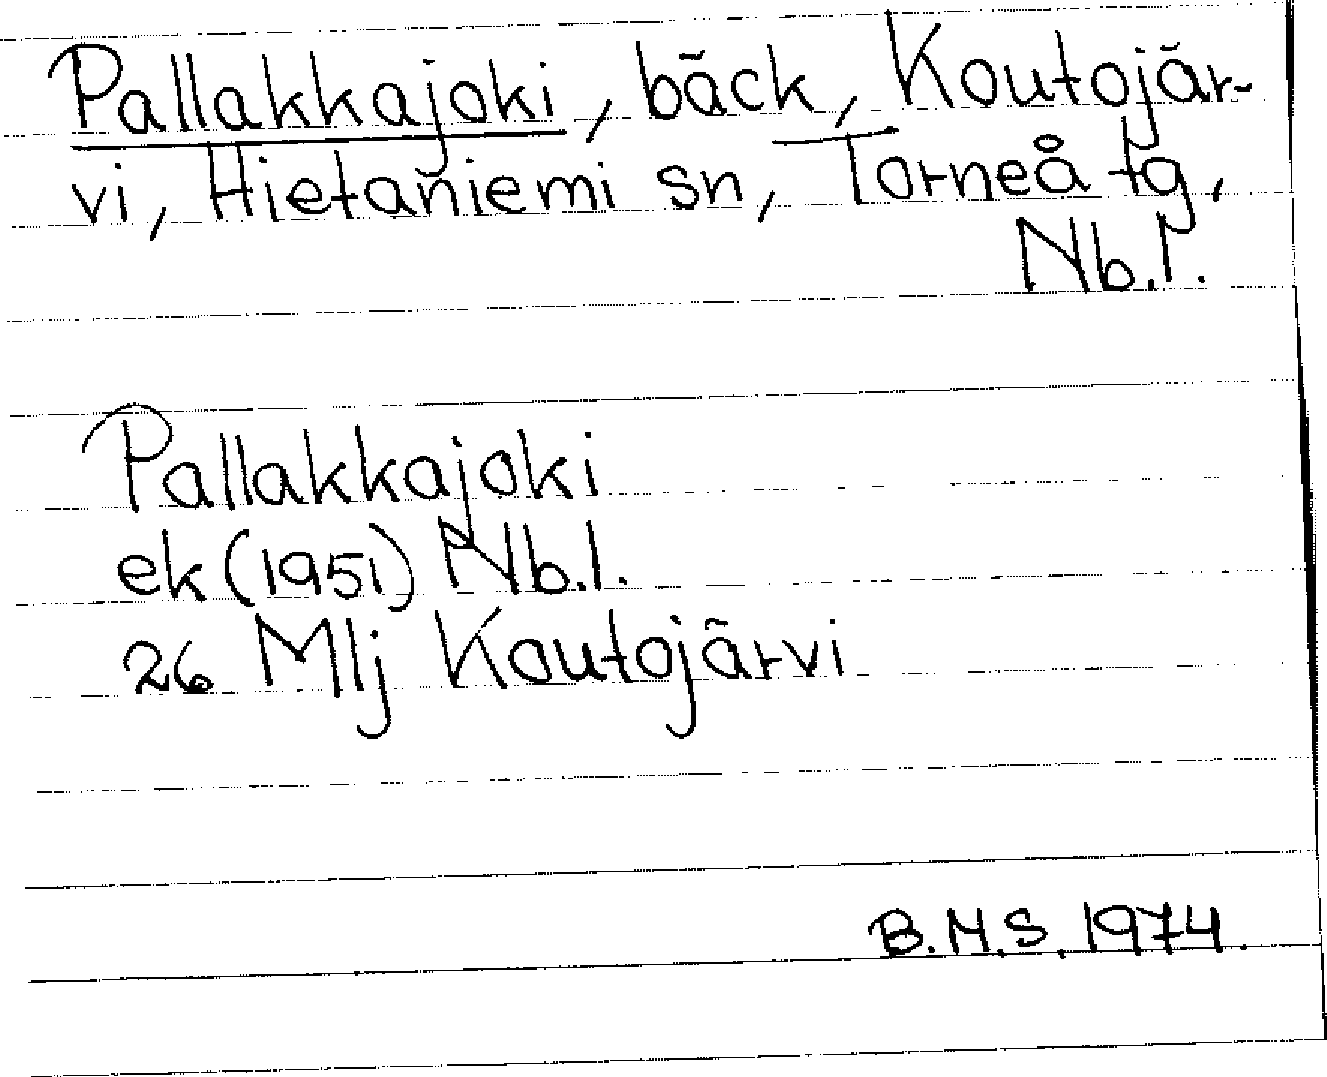 Pallakkajoki, bäck, Koutojär-
vi, Hietaniemi sn, Torneå tg,
Nb.l.
Pallakkajoki
ek (1951) Nb.l.
26 Mlj Koutojärvi
B.M.S. 1974.